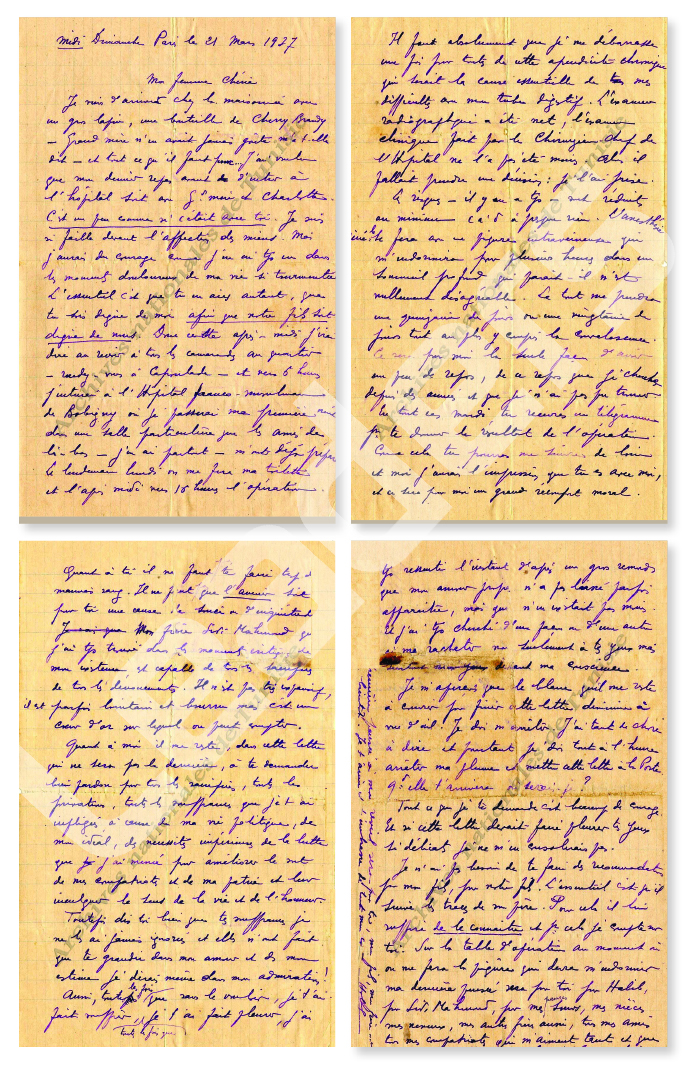 midi Dimanche Paris le 21 Mars 1937
Ma femme Chérie
Je viens d'arriver chez la maison avec
un gros lapin, une bouteille de Cherry Brandy
– Grand'mère n'en avait jamais goûté m'a-t-elle
dit – et tout ce qu'il faut pour. J'ai voulu
que mon dernier repas avant d'entrer à
l'hôpital soit avec Gd mère et Charlotte.
C'est un peu comme si c'était avec toi. Je suis
si faible devant l'affection des miens. Moi
j'aurai du courage comme j'en ai tjs eu dans
les moments douloureux de ma vie si tourmentée
L'essentiel c'est que tu en aies autant, que
tu sois digne de moi afin que notre fils soit
digne de nous. Donc cette après-midi j'irai
dire au revoir à tous les camarades au quartier
– rendez-vous à Capoulade – et vers 6 heures
j'entrerai à l'Hôpital franco-musulman
de Bobigny où je passerai ma première nuit
dans une salle particulière que les amis de
là-bas – j'en ai partout – m'ont déjà préparée
Le lendemain lundi on me fera ma toilette
et l'après midi vers 16 heures l'opération.
Il faut absolument que je me débarrasse
une fois pour toutes de cette appendicite chronique
qui serait la cause essentielle de tous mes
difficultés avec mon tube digestif. L'examen
radiographique a été net, l'examen
clinique fait par le Chirurgien chef de
l'Hôpital ne l'a pas été moins. Alors il
fallait prendre une décision: je l'ai prise.
Le risque – il y en a tjs – est réduit
au minimum c'à d à presque rien. L'anesthésie
se fera avec une piqûre intraveineuse qui
m'endormira pour plusieurs heures dans un
sommeil profond qui paraît-il n'est
nullement désagréable. Le tout me prendra
une quinzaine de jours ou une vingtaine de
jours tout au plus y compris la convalescence.
Ce sera pour moi la seule façon d'avoir
un peu de repos, de ce repos que je cherche
depuis des années et que je n'ai pas pu trouver
En tout cas mardi tu recevras un télégramme
pr te donner le résultat de l'opération.
Comme cela tu pourras me suivre de loin
et moi j'aurai l'impression que tu es avec moi,
et ce sera pour moi un grand réconfort moral.
Quant à toi il ne faut pas te faire trop de
mauvais sang. Il ne faut que l'avenir soit
pour toi une cause de souci ou d'inquiétude
Mon frère Sidi Mahmoud que
j'ai tjs trouvé dans les moments critiques de
mon existence, est capable de tous les sacrifices
de tous les dévouements. Il n'est pas très expansif,
il est parfois lointain et bourru mais c'est un
cœur d'or sur lequel on peut compter.
Quant à moi il me reste dans cette lettre
qui ne sera pas la dernière, à te demander
bien pardon pour tous les sacrifices, toutes les
privations, toutes les souffrances que je t'ai
infligés à cause de ma vie politique, de
mon idéal, des nécessités impérieuses de la lutte
que j'ai menée pour améliorer le sort
de mes compatriotes et de ma patrie et leur
inculquer le sens de la vie et de l'honneur.
Toutefois dis toi bien que tes souffrances je
ne les ai jamais ignorées et elles n'ont fait
que te grandir dans mon amour et dans mon
estime je dirai même dans mon admiration!
Aussi, toutes les fois que sans le vouloir, je t'ai
fait souffrir, toutes les fois que je t'ai fait pleurer, j'ai
tjs ressenti l'instant d'après un gros remords
que mon amour propre n'a pas laissé parfois
apparaître, mais qui n'en existait pas moins.
Et j'ai tjs cherché d'une façon ou d'une autre
à me racheter non seulement à tes yeux mais
surtout aux yeux de ma conscience.
Je m'aperçois que le blanc qu'il me reste
à couvrir pour finir cette lettre diminue à
vue d'œil. Je dois m'arrêter. J'ai tant de choses
à dire et pourtant je dois tout à l'heure
arrêter ma plume et mettre cette lettre à la Poste.
Qd elle t'arrivera où serai-je ?
Tout ce que je te demande c'est beaucoup de courage.
Et si cette lettre devait faire pleurer tes yeux
si délicats je ne m'en consolerais pas.
Je n'ai pas besoin de te faire des recommandations
pour mon fils, pour notre fils. L'essentiel est qu'il
suive les traces de son père. Pour cela il lui
suffira de le connaître et pr cela je compte sur
toi. Sur la table d'opération au moment où
on me fera la piqûre qui devra m'endormir
ma dernière pensée sera pour toi, pour Habib,
pour Sidi Mahmoud, pour mes sœurs, mes nièces,
mes neveux, mes autres frères aussi, tous mes amis
tous mes compatriotes qui m'aiment tant et que